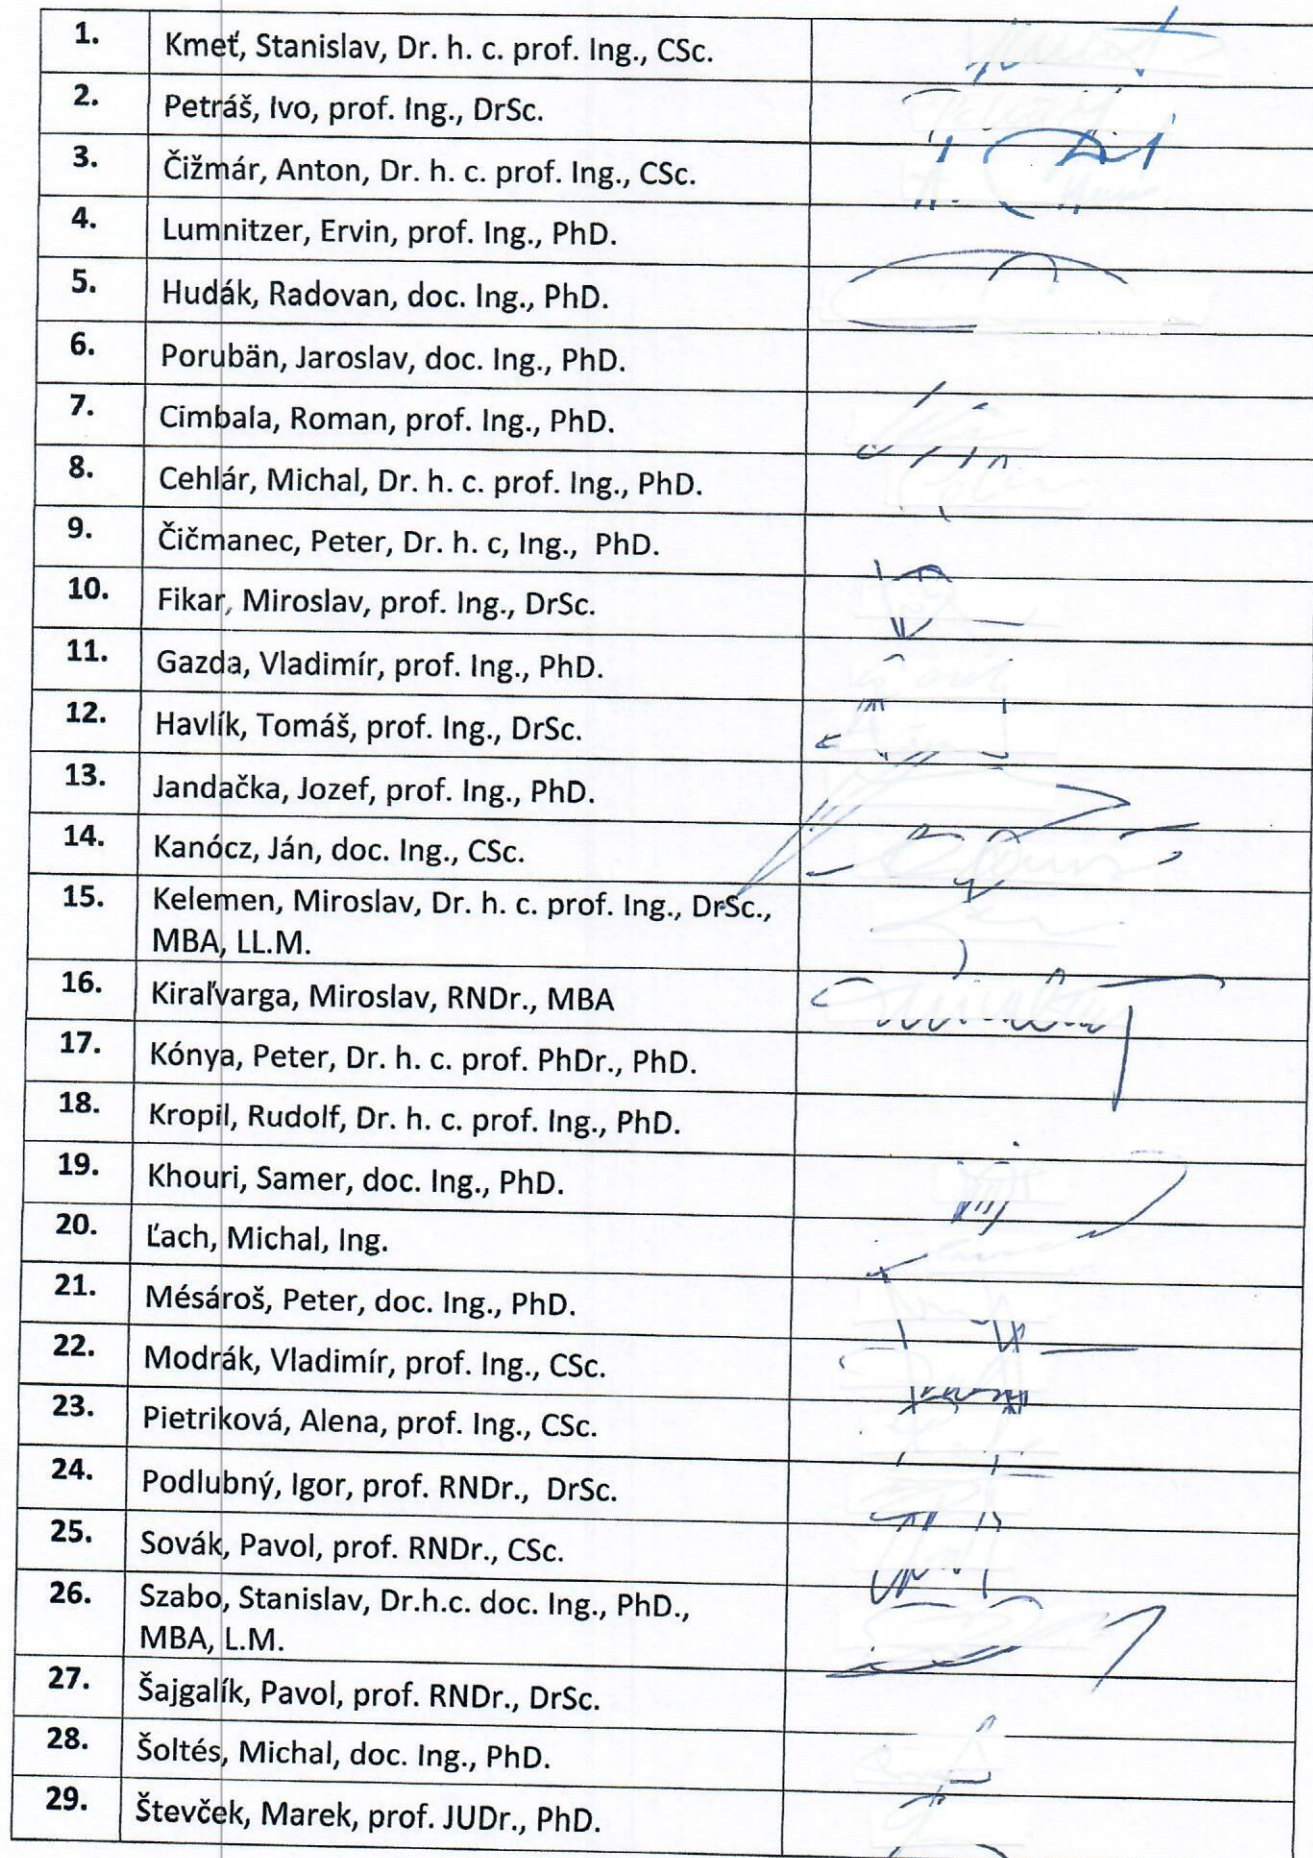 1. Kmeť, Stanislav, Dr. h. c. prof. Ing., CSc.
2. Petráš, Ivo, prof. Ing., DrSc.
3. Čižmár, Anton, Dr. h. c. prof. Ing., CSc.
4. Lumnitzer, Ervin, prof. Ing., PhD.
5. Hudák, Radovan, doc. Ing., PhD.
6. Porubän, Jaroslav, doc. Ing., PhD.
7. Cimbala, Roman, prof. Ing., PhD.
8. Cehlár, Michal, Dr. h. c. prof. Ing., PhD.
9. Čičmanec, Peter, Dr. h. c, Ing., PhD.
10. Fikar, Miroslav, prof. Ing., DrSc.
11. Gazda, Vladimír, prof. Ing., PhD.
12. Havlík, Tomáš, prof. Ing., DrSc.
13. Jandačka, Jozef, prof. Ing., PhD.
14. Kanócz, Ján, doc. Ing., CSc.
15. Kelemen, Miroslav, Dr. h. c. prof. Ing., DrSc.,
MBA, LL.M.
16. Kiraľvarga, Miroslav, RNDr., MBA
17. Kónya, Peter, Dr. h. c. prof. PhDr., PhD.
18. Kropil, Rudolf, Dr. h. c. prof. Ing., PhD.
19. Khouri, Samer, doc. Ing., PhD.
20. Ľach, Michal, Ing.
21. Mésároš, Peter, doc. Ing., PhD.
22. Modrák, Vladimír, prof. Ing., CSc.
23. Pietriková, Alena, prof. Ing., CSc.
24. Podlubný, Igor, prof. RNDr., DrSc.
25. Sovák, Pavol, prof. RNDr., CSc.
26. Szabo, Stanislav, Dr.h.c. doc. Ing., PhD.,
MBA, L.M.
27. Šajgalík, Pavol, prof. RNDr., DrSc.
28. Šoltés, Michal, doc. Ing., PhD.
29. Števček, Marek, prof. JUDr., PhD.